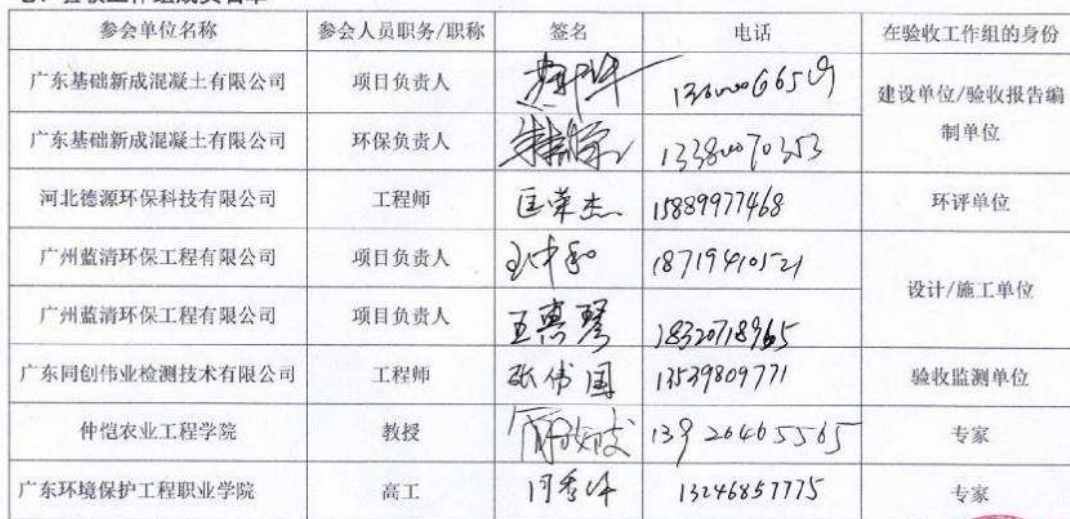 参会单位名称 参会人员职务/职称 签名 电话 在验收工作组的身份
广东基础新成混凝土有限公司 项目负责人 建设单位/验收报告编
制单位
广东基础新成混凝土有限公司 环保负责人
河北德源环保科技有限公司 工程师 匡荣杰 15889977468 环评单位
广州蓝清环保工程有限公司 项目负责人 18719410521 设计/施工单位
广州蓝清环保工程有限公司 项目负责人 王惠琴 18320718965
广东同创伟业检测技术有限公司 工程师 张伟国 13539809771 验收监测单位
仲恺农业工程学院 教授 13926465565 专家
广东环境保护工程职业学院 高工 13246857775 专家